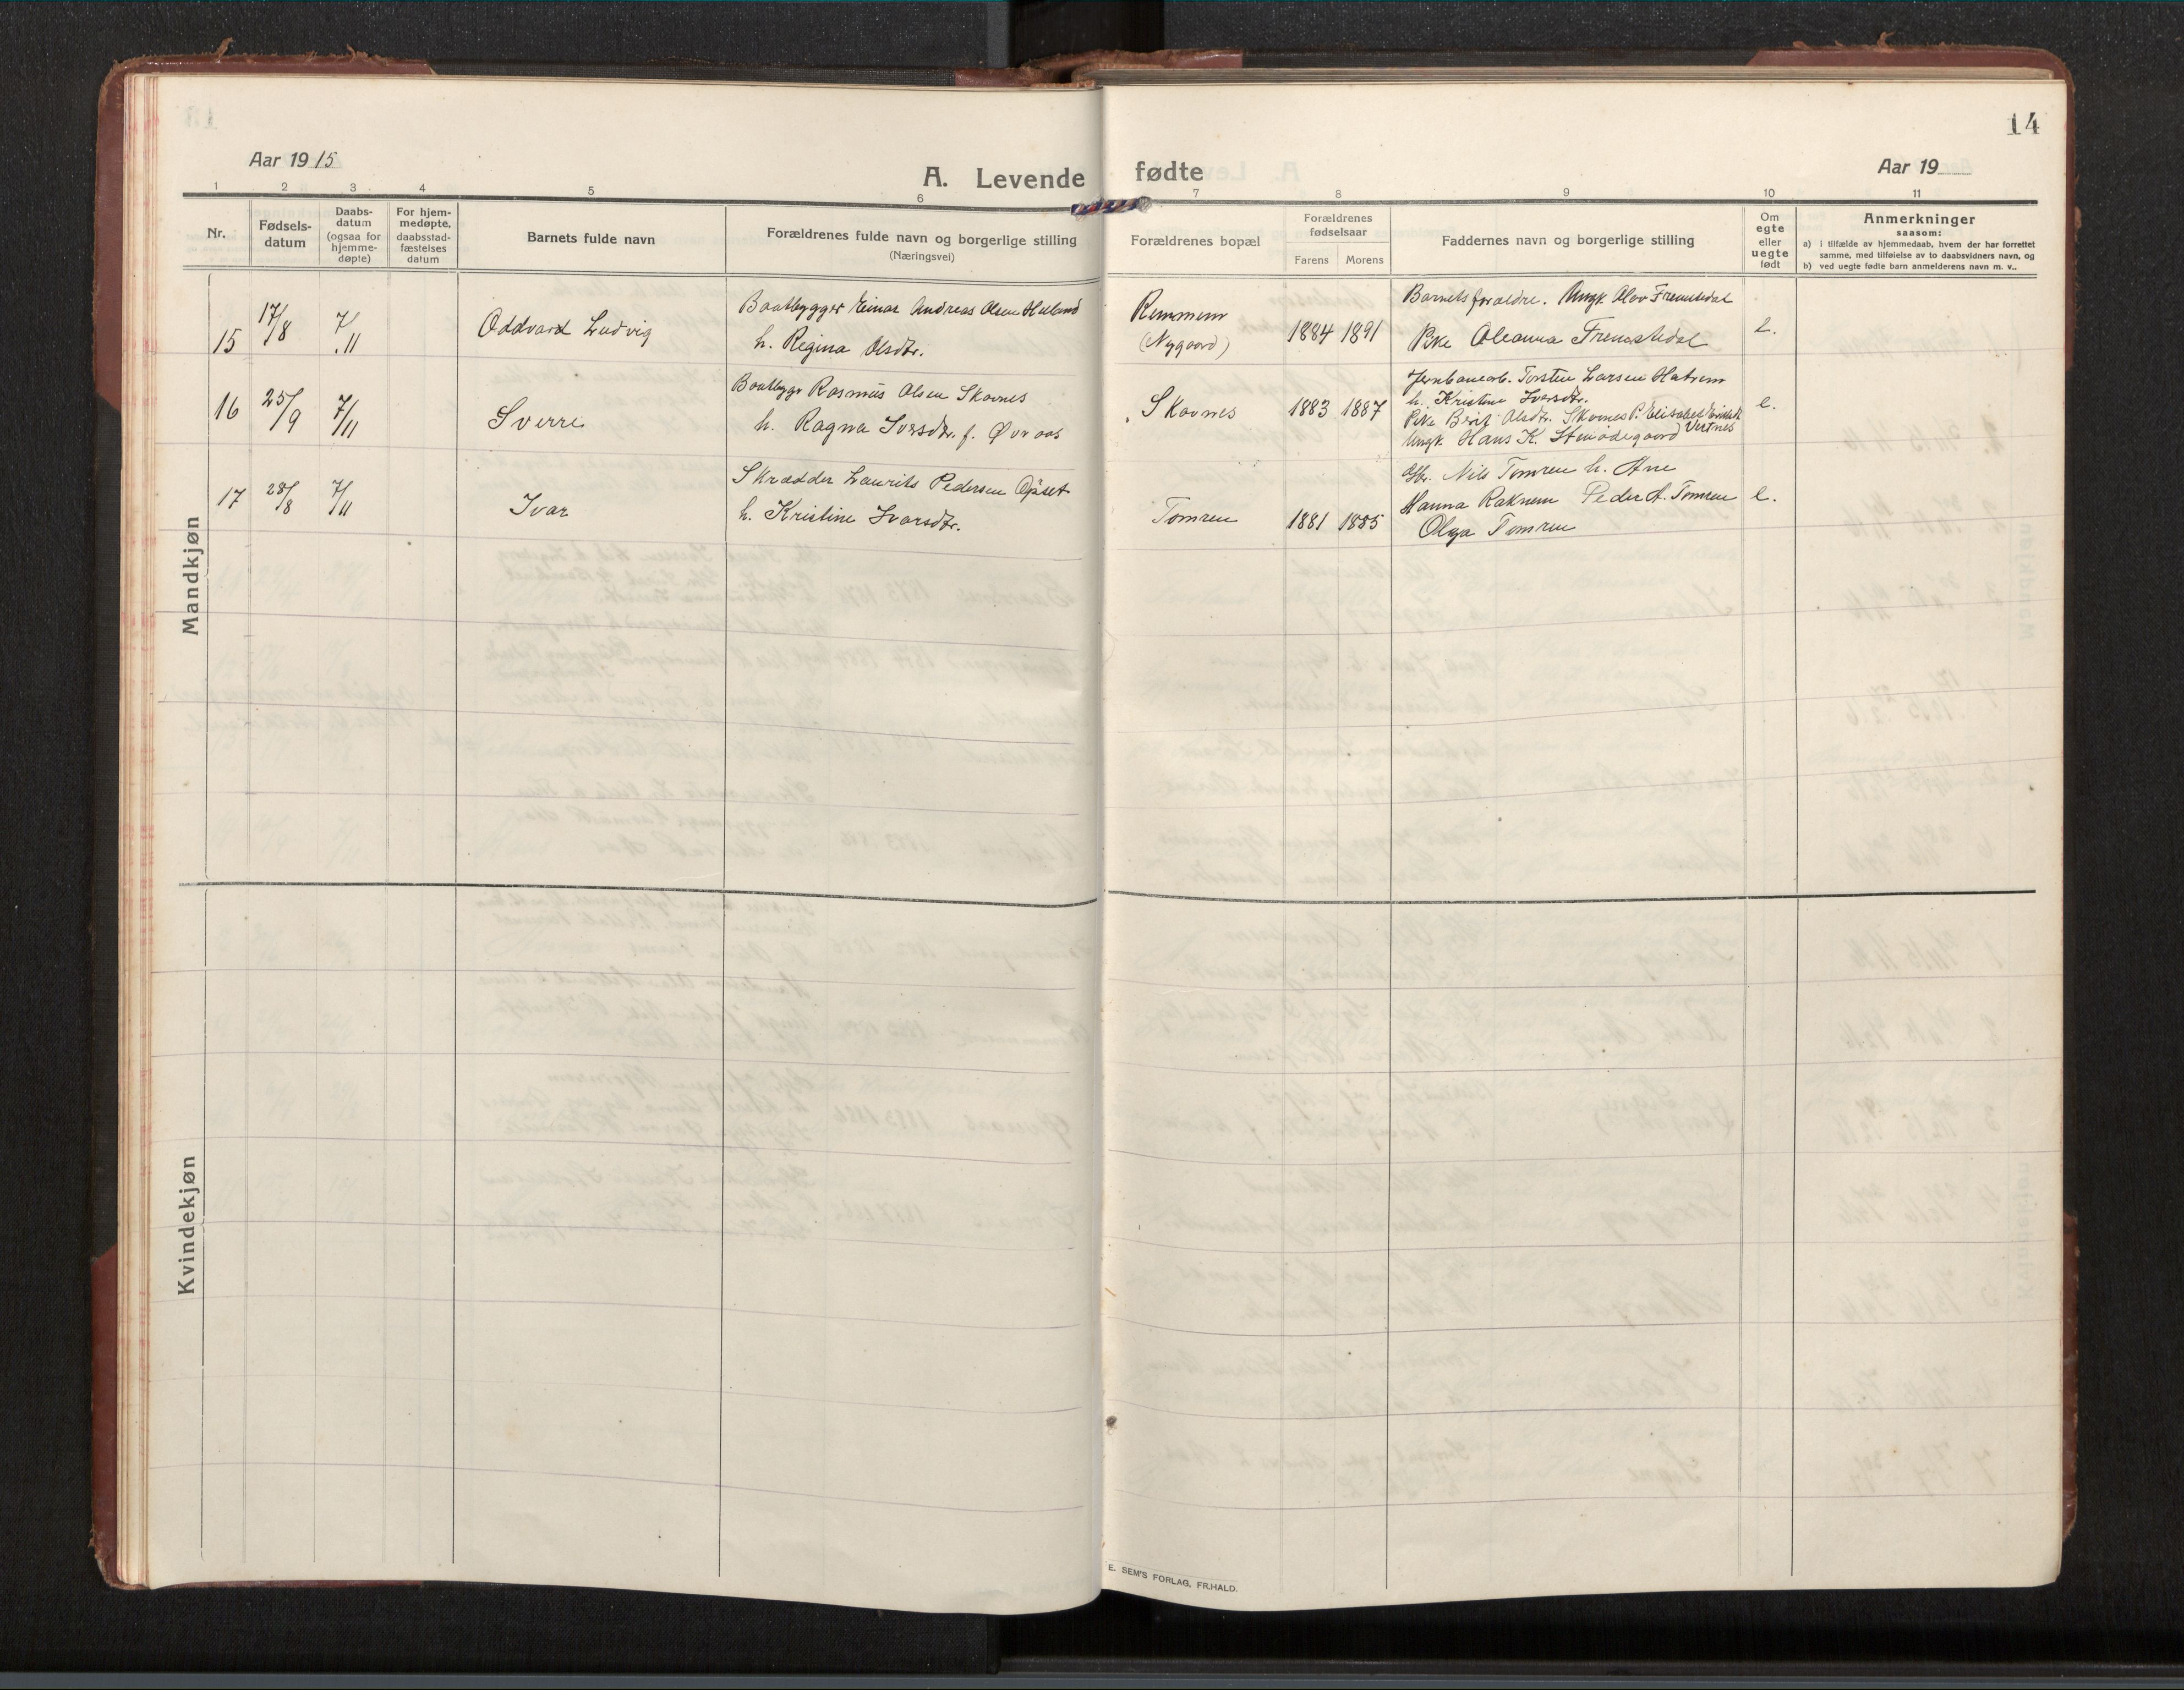 14
Aar 1915
A. Levende fødte
Aar 19
1 2 3 4 5 6 7 8 9 10 11
Nr.
Fødsels-
datum
Daabs-
datum
(ogsaa for
hjemme-
døpte)
For hjem-
medøpte,
daabsstad-
fæstelses
datum
Barnets fulde navn
Forældrenes fulde navn og borgerlige stilling
(Næringsvei)
Forældrenes bopæl
Forældrenes
fødselsaar
Farens Morens
Faddernes navn og borgerlige stilling
Om
egte
eller
uegte
født
Anmerkninger
saasom:
a) i tilfælde av hjemmedaab, hvem der har forrettet
samme, med tilføielse av to daabsvidners navn, og
b) ved uegte fødte barn anmelderens navn m. v..
Mandkjøn
15 17/8 7/11 Oddvard Ludvig
Baatbygger Einar Andreas Olsen
h. Regina Olsdtr.
Remmem
(Nygaard)
1884 1891
Barnets foraeldre. Ungk. Olav Fremstedal
Pike Oleanna Fremstedal
e.
16 25/9 7/11 Sverre
Baatbygr Rasmus Olsen Skavnes
h. Ragna Iversdtr. f. Øvraas
Skavnes
1883 1887
Jernbanearb. Torsten Larsen Hatrem
h. Kristine Iversdtr.
Pike Berit Olsdtr. Skavnes P. Elisabet
Vestnes
Ungk. Hans K.
e.
17 28/8 7/11 Ivar
Skrædder Laurits Pedersen Opset
h. Kristine Ivarsdtr.
Tomren
1881 1885
Gbr. Nils Tomren h. Ane
Hanna Raknem Peder A. Tomren
Olga Tomren
e.
Kvindekjøn
E. SEM'S FORLAG, FR.HALD.